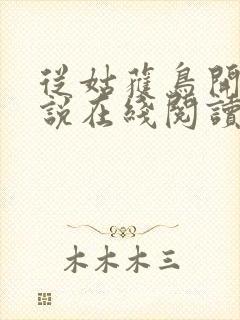 從姑獲鳥開
說在綫閱讀
木木木三